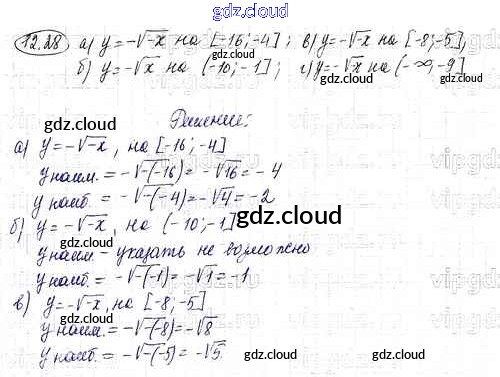 gdz.cloud
12.28 а) y=-√-x на [-16;-4]; в) y=-√-x на [-8;-5];
б) y=-√x на (-10;-1]; г) y=-√-x на (-∞,-9]
gdz.cloud gdz.cloud
Решение:
а) y=-√-x, на [-16;-4]
y наим. = -√-(-16) = -√16 = -4
y наиб. = -√-(-4) = -√4 = -2
б) y=-√-x, на (-10;-1]
gdz.cloud
y наим. - указать не возможно
y наиб. = -√-(-1) = -√1 = -1
в) y=-√-x, на [-8;-5]
y наим. = -√-(-8) = -√8
y наиб. = -√-(-5) = -√5.
gdz.cloud gdz.cloud